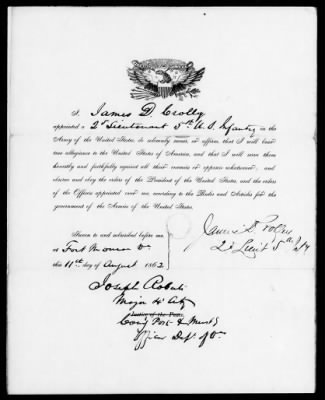 I, James D. Crolly
appointed a 2d Lieutenant 5th U.S. Infantry in the
Army of the United States, do solemnly swear, or affirm, that I will bear
true allegiance to the United States of America, and that I will serve them
honestly and faithfully against all their enemies or opposers whatsoever; and
observe and obey the orders of the President of the United States, and the orders
of the Officers appointed over me, according to the Rules and Articles for the
government of the Armies of the United States.
Sworn to and subscribed before me,
at Fort Monroe
this 11th day of August 1862
James D. Crolly
2d Lieut 5th
Joseph Roberts
Major 4th Arty
Justice of the Peace.
Comg Post & Must'g
Officer Dept of Va.